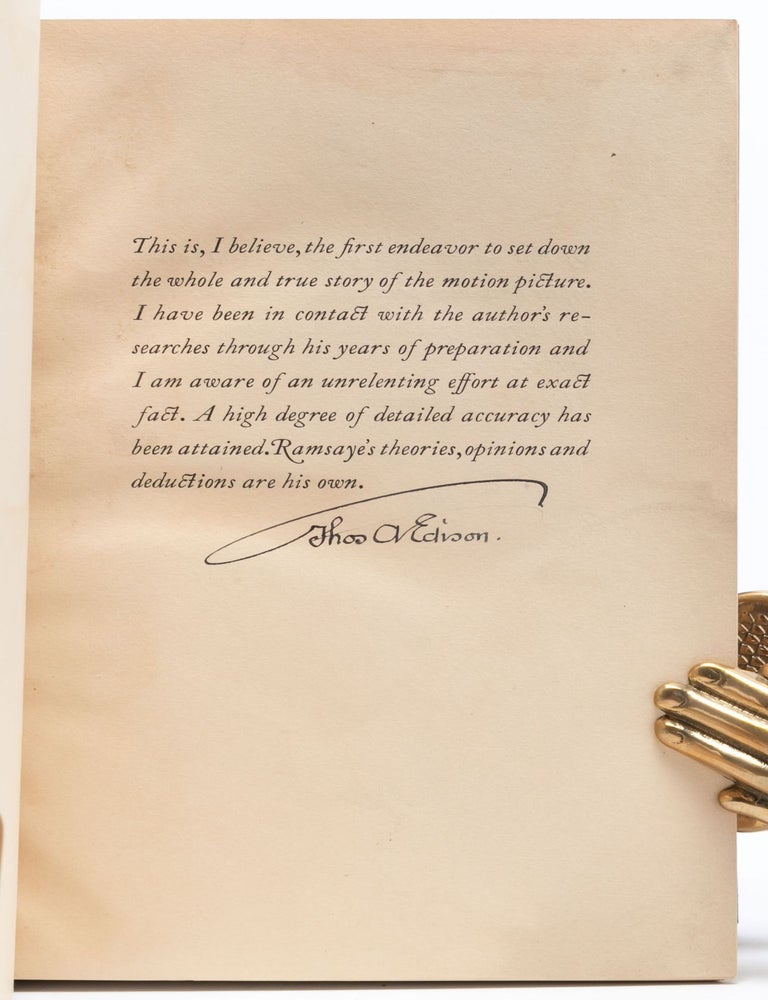 This is, I believe, the first endeavor to set down
the whole and true story of the motion picture.
I have been in contact with the author's re-
searches through his years of preparation and
I am aware of an unrelenting effort at exact
fact. A high degree of detailed accuracy has
been attained. Ramsaye's theories, opinions and
deductions are his own.
Thos A Edison.